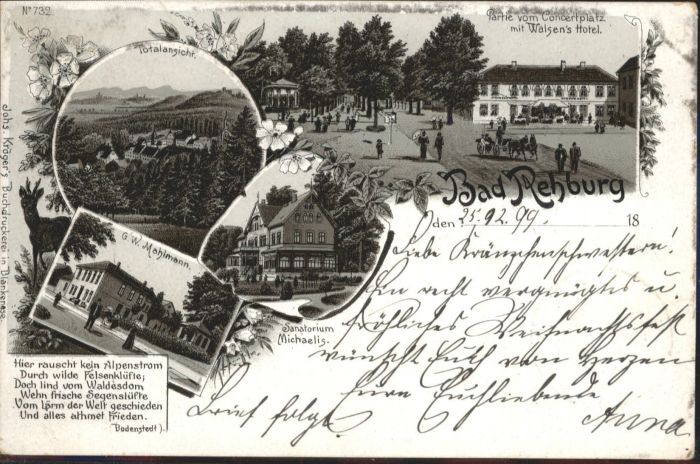 No 732.
Totalansicht.
Partie vom Concertplatz
mit Walsen's Hotel.
Bad Rehburg
den 25.12.99. 18
G.W. Mahlmann.
Sanatorium
Michaelis.
Johs. Kröger's Buchdruckerei in Blankenese.
Liebe Kränzchenschwestern!
Ein recht vergnügtes u.
fröhliches Weihnachtsfest
wünscht Euch von Herzen
Eure Euchliebende
Brief folgt. Anna
Hier rauscht kein Alpenstrom
Durch wilde Felsenklüfte;
Doch lind vom Waldesdom
Wehn frische Segenslüfte
Vom Lärm der Welt geschieden
Und alles athmet Frieden.
Bodenstedt).